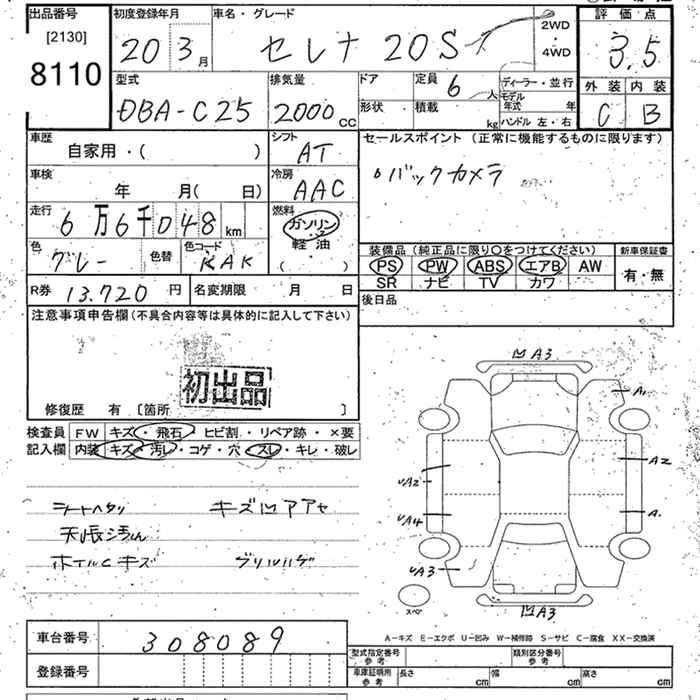 出品番号
[2130]
8110
初度登録年月
20年3月
車名・グレード
セレナ 20S
2WD
・
4WD
評価点
3.5
外装 内装
C B
型式
DBA-C25
排気量
2000cc
ドア
定員 6人
形状
積載 kg
ディーラー・並行
モデル年式 年
ハンドル 左・右
車歴
自家用・( )
シフト
AT
セールスポイント (正常に機能するものに限ります)
○バックカメラ
車検
年 月( 日)
冷房
AAC
走行
6万6千048km
燃料
ガソリン
軽油
( )
色
グレー
色替
色コード
KAK
装備品 (純正品に限り○をつけてください)
PS PW ABS エアB AW
SR ナビ TV カワ
新車保証書
有・無
R券 13,720円
名変期限 月 日
後日品
注意事項申告欄(不具合内容等は具体的に記入して下さい)
初出品
修復歴 有 [箇所 ]
検査員
記入欄
FW キズ・飛石・ヒビ割・リペア跡・×要
内装 キズ・汚レ・コゲ・穴・スレ・キレ・破レ
シートヘタリ キズ凹アアセ
ホイルCキズ グリルハゲ
凹A3
A1
UA2
A2
UA4
A.
UA3
スペア
凹A3
A-キズ E-エクボ U-凹み W-補修跡 S-サビ C-腐食 XX-交換済
車台番号
308089
登録番号
型式指定番号
参考
類別区分番号
参考
車庫証明用
参考
長さ cm
幅 cm
高さ cm